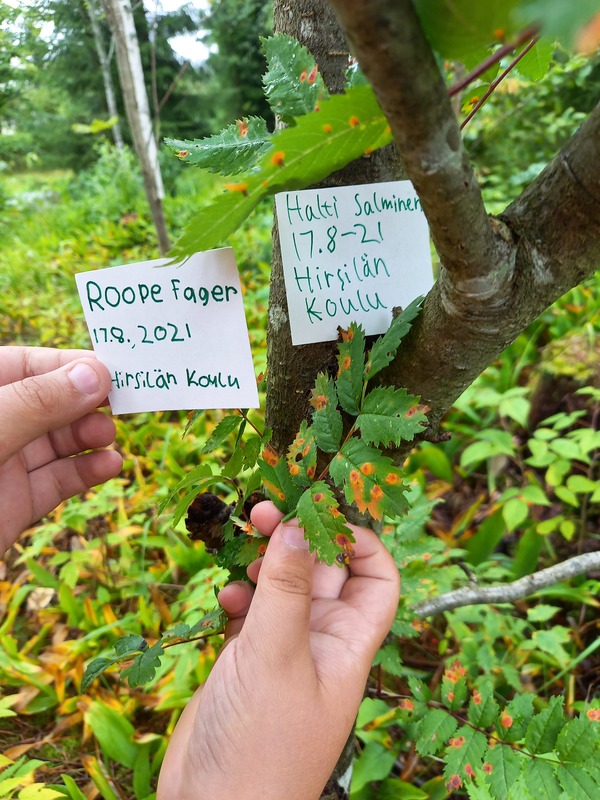 Roope Fager
17.8., 2021
Hirsilän Koulu
Halti Salminen
17.8-21
Hirsilän
Koulu